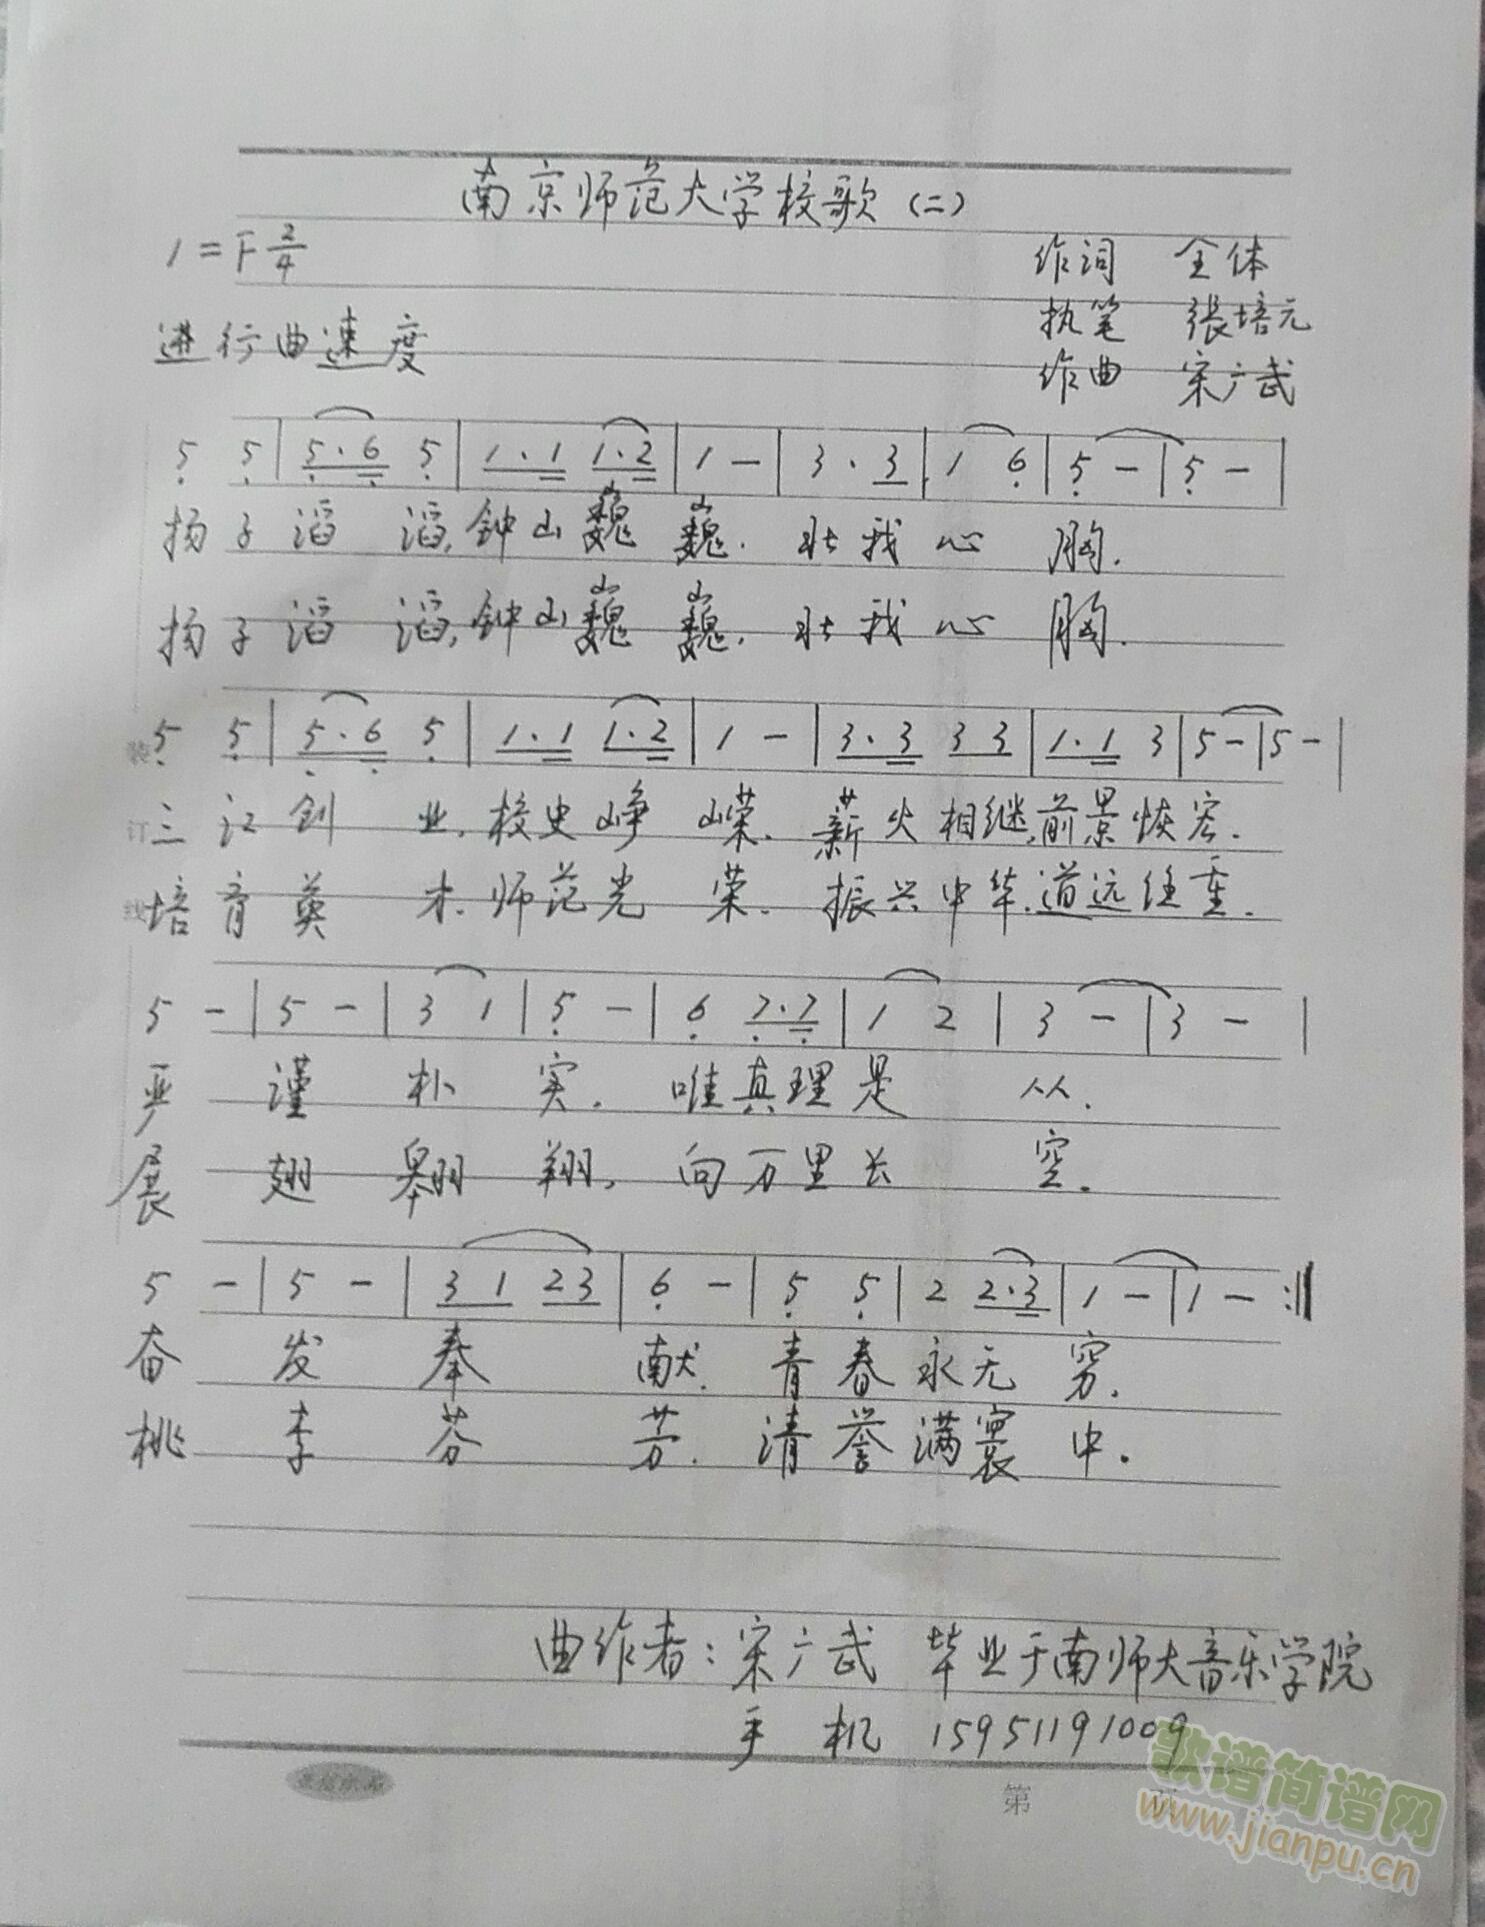 南京师范大学校歌（二）
1=F 2/4
作词 全体
进行曲速度
执笔 張培元
作曲 宋广武
5 5 | 5·6 5 | 1·1 1·2 | 1 — | 3·3 | 1 6 | 5 — | 5 — |
扬子滔 滔,钟山巍 巍. 壮我心 胸.
扬子滔 滔,钟山巍 巍. 壮我心 胸.
5 5 | 5·6 5 | 1·1 1·2 | 1 — | 3·3 3 3 | 1·1 3 | 5 — | 5 — |
三江创 业.校史峥 嵘. 薪火相继,前景恢宏.
培育英 才.师范光 荣. 振兴中华.道远任重.
5 — | 5 — | 3 1 | 5 — | 6 7·7 | 1 2 | 3 — | 3 — |
严 谨 朴 实. 唯真理是 从.
展 翅 翱 翔, 向万里长 空.
5 — | 5 — | 3 1 2 3 | 6 — | 5 5 | 2 2·3 | 1 — | 1 — :||
奋 发 奉 献. 青春永无 穷.
桃 李 芬 芳. 清誉满寰 中.
曲作者：宋广武 毕业于南师大音乐学院
手 机 15951191009
装
订
线
第
歌谱简谱网
www.jianpu.cn